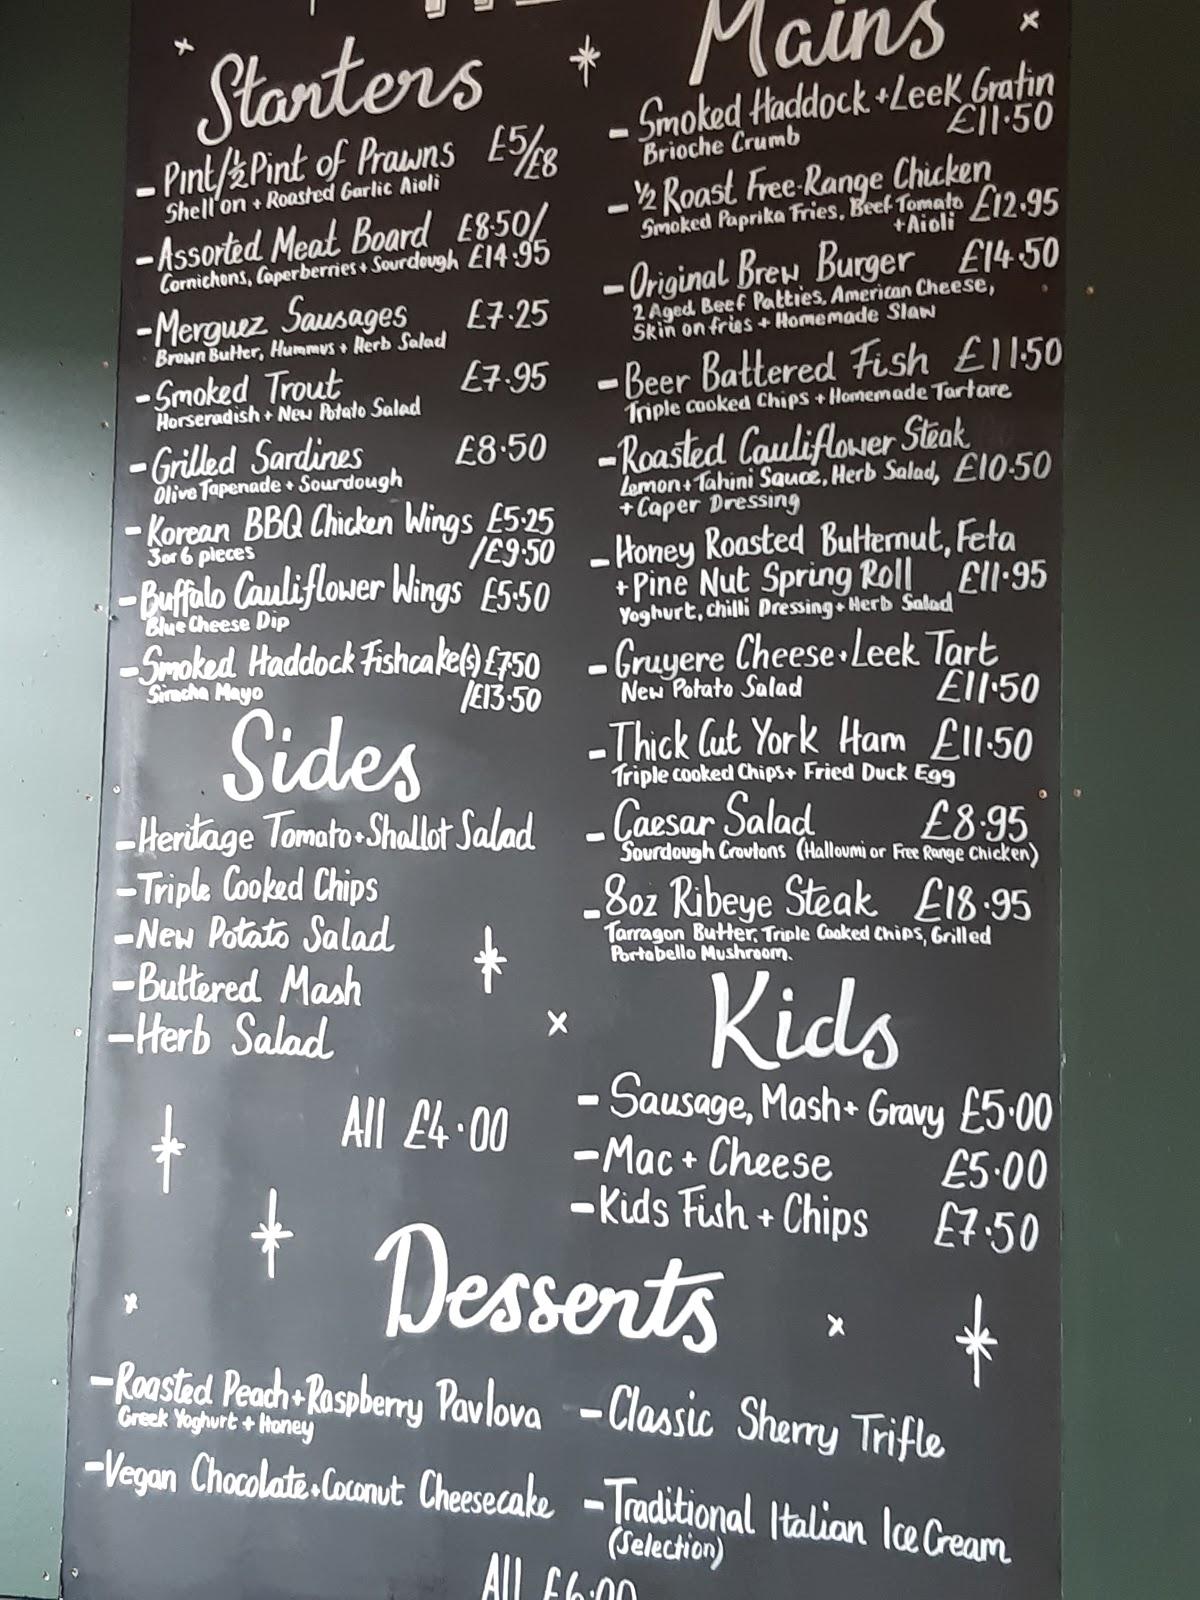 Starters
- Pint/½ Pint of Prawns £5/£8
Shell on + Roasted Garlic Aioli
- Assorted Meat Board £8.50/
Cornichons, Caperberries + Sourdough £14.95
- Merguez Sausages £7.25
Brown Butter, Hummus + Herb Salad
- Smoked Trout £7.95
Horseradish + New Potato Salad
- Grilled Sardines £8.50
Olive Tapenade + Sourdough
- Korean BBQ Chicken Wings £5.25
3 or 6 pieces /£9.50
- Buffalo Cauliflower Wings £5.50
Blue Cheese Dip
- Smoked Haddock Fishcake(s) £7.50
Siracha Mayo /£13.50
Sides
- Heritage Tomato + Shallot Salad
- Triple Cooked Chips
- New Potato Salad
- Buttered Mash
- Herb Salad
All £4.00
Mains
- Smoked Haddock + Leek Gratin
Brioche Crumb £11.50
- ½ Roast Free-Range Chicken
Smoked Paprika Fries, Beef Tomato £12.95
+ Aioli
- Original Brew Burger £14.50
2 Aged Beef Patties, American Cheese,
Skin on fries + Homemade Slaw
- Beer Battered Fish £11.50
Triple cooked Chips + Homemade Tartare
- Roasted Cauliflower Steak
Lemon + Tahini Sauce, Herb Salad, £10.50
+ Caper Dressing
- Honey Roasted Butternut, Feta
+ Pine Nut Spring Roll £11.95
Yoghurt, Chilli Dressing + Herb Salad
- Gruyere Cheese + Leek Tart
New Potato Salad £11.50
- Thick Cut York Ham £11.50
Triple cooked Chips + Fried Duck Egg
- Caesar Salad £8.95
Sourdough Croutons (Halloumi or Free Range Chicken)
- 8oz Ribeye Steak £18.95
Tarragon Butter, Triple Cooked Chips, Grilled
Portobello Mushroom.
Kids
- Sausage, Mash + Gravy £5.00
- Mac + Cheese £5.00
- Kids Fish + Chips £7.50
Desserts
- Roasted Peach + Raspberry Pavlova
Greek Yoghurt + Honey
- Vegan Chocolate + Coconut Cheesecake
- Classic Sherry Trifle
- Traditional Italian Ice Cream
(Selection)
All £6.00